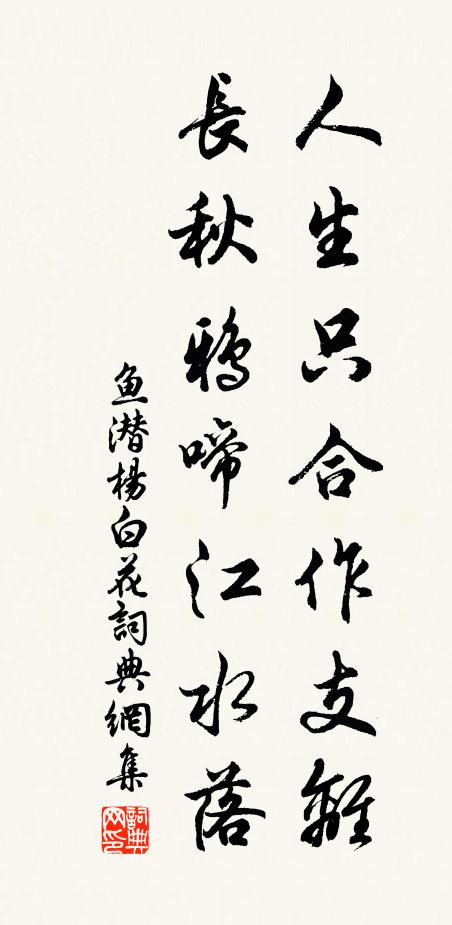 人生只合作支離
長秋鴉啼江水落
鱼潜楊白花詞典網集
詞典网印